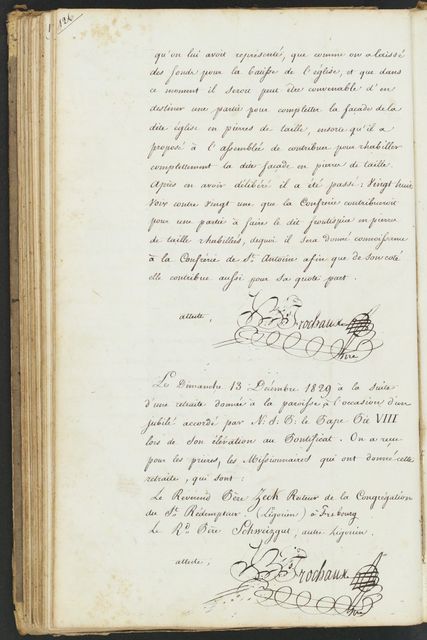 126
qu'on lui avoit representé, que comme on a laissé
des fonds pour la batisse de l'église, et que dans
ce moment il seroit peut être convenable d'en
destiner une partie pour completter la façade de la
dite église en pierres de taille, ensorte qu'il a
proposé à l'assemblée de contribuer pour rhabiller
complettement la dite façade en pierre de taille.
Après en avoir délibéré il a été passé: Vingt huit
voix contre vingt une que la Confrérie contribueroit
pour une partie à faire le dit frontispice en pierres
de taille rhabillées, dequoi il sera donné connoissance
à la Confrérie de St. Antoine afin que de son coté
elle contribue aussi pour sa quote part.
atteste,
Frochaux
Le Dimanche 13 Décembre 1829 à la suite
d'une retraite donnée à la paroisse à l'occasion d'un
jubilé accordé par N: S: P: le Pape Pie VIII
lors de son élévation au Pontificat. On a reçu
pour les prières, les Missionnaires qui ont donné cette
retraite, qui sont:
Le Révérend Père Zeck Recteur de la Congrégation
du St. Rédempteur (Ligorien) à Fribourg
Le Rd. Père Schweizgut, autre Ligorien.
atteste,
Frochaux